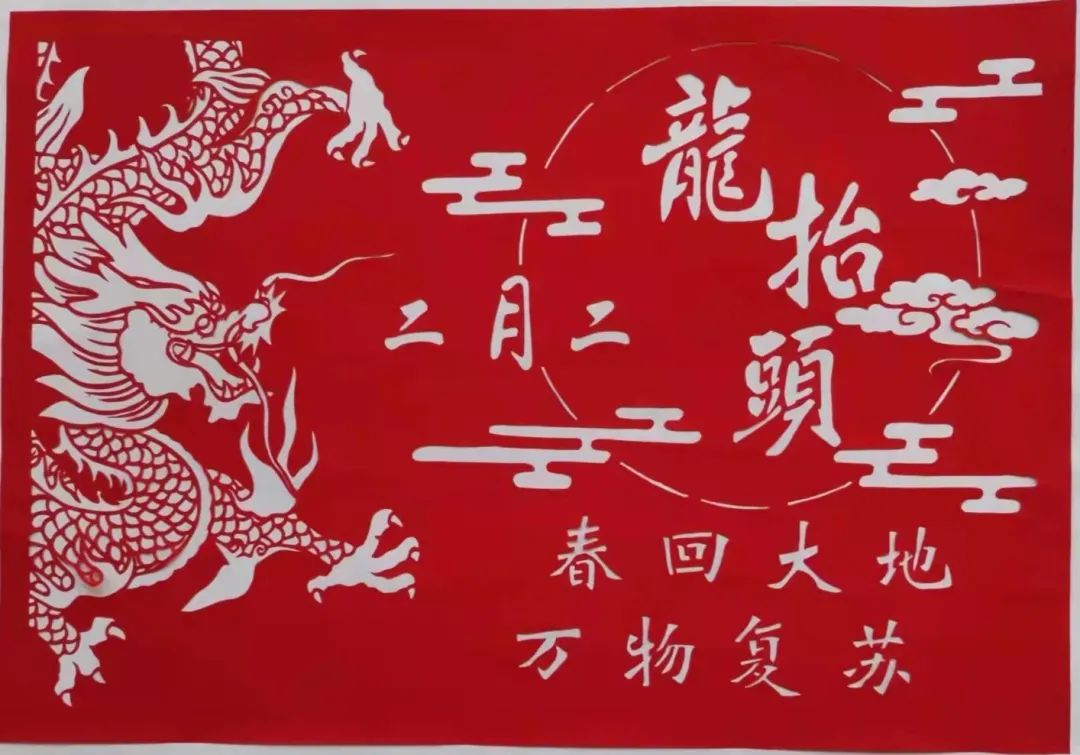 二月二
龍抬頭
春回大地
万物复苏